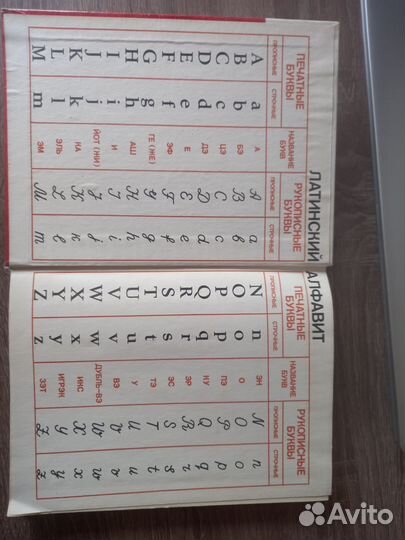 ЛАТИНСКИЙ АЛФАВИТ
ПЕЧАТНЫЕ БУКВЫ НАЗВАНИЕ БУКВ РУКОПИСНЫЕ БУКВЫ
ПРОПИСНЫЕ СТРОЧНЫЕ ПРОПИСНЫЕ СТРОЧНЫЕ
A a А A a
B b БЭ B b
C c ЦЭ C c
D d ДЭ D d
E e Е E e
F f ЭФ F f
G g ГЕ (ЖЕ) G g
H h АШ H h
I i И I i
J j ЙОТ (ЖИ) J j
K k КА K k
L l ЭЛЬ L l
M m ЭМ M m
ПЕЧАТНЫЕ БУКВЫ НАЗВАНИЕ БУКВ РУКОПИСНЫЕ БУКВЫ
ПРОПИСНЫЕ СТРОЧНЫЕ ПРОПИСНЫЕ СТРОЧНЫЕ
N n ЭН N n
O o О O o
P p ПЭ P p
Q q КУ Q q
R r ЭР R r
S s ЭС S s
T t ТЭ T t
U u У U u
V v ВЭ V v
W w ДУБЛЬ-ВЭ W w
X x ИКС X x
Y y ИГРЭК Y y
Z z ЗЭТ Z z
Avito